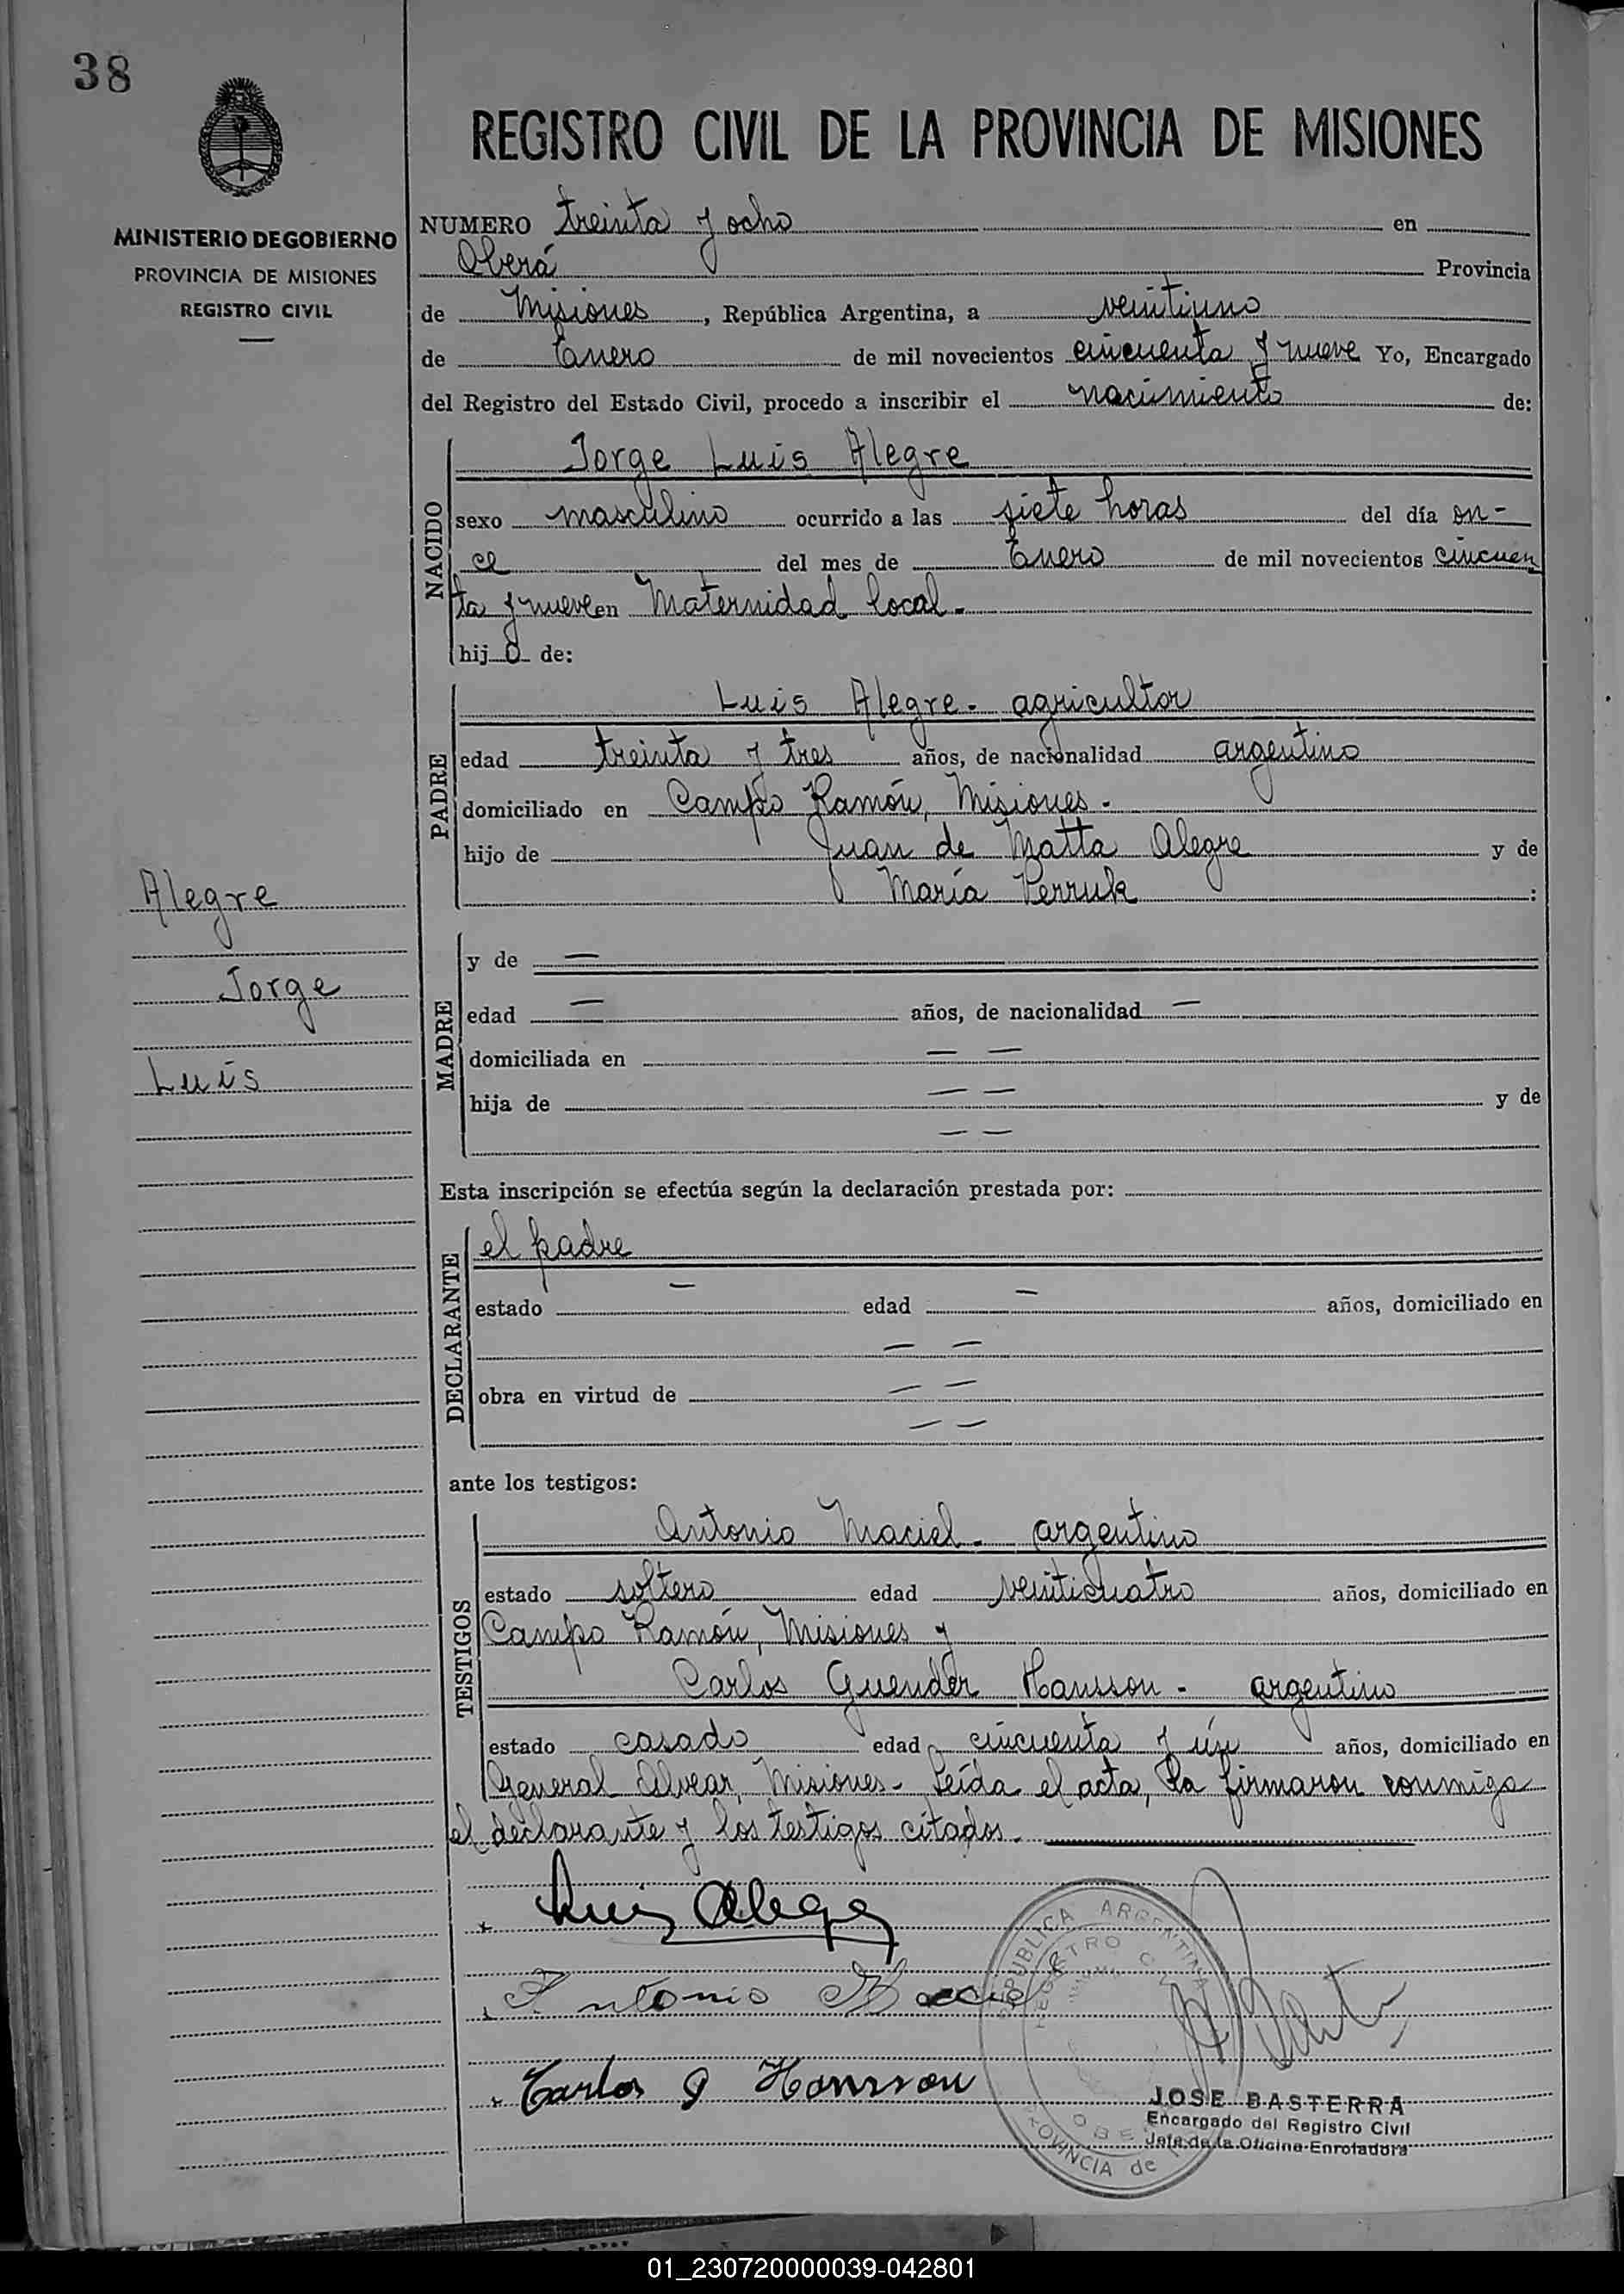 38
REGISTRO CIVIL DE LA PROVINCIA DE MISIONES
MINISTERIO DE GOBIERNO
PROVINCIA DE MISIONES
REGISTRO CIVIL
NUMERO treinta y ocho en
Oberá Provincia
de Misiones, República Argentina, a veintiuno
de Enero de mil novecientos cincuenta y nueve Yo, Encargado
del Registro del Estado Civil, procedo a inscribir el nacimiento de:
NACIDO
Jorge Luis Alegre
sexo masculino ocurrido a las siete horas del día on-
ce del mes de Enero de mil novecientos cincuen
ta y nueve en Maternidad local.-
hijo de:
PADRE
Luis Alegre - agricultor
edad treinta y tres años, de nacionalidad argentino
domiciliado en Campo Ramón, Misiones.-
hijo de Juan de Matta Alegre y de
María Perruk :
Alegre
Jorge
Luis
MADRE
y de —
edad — años, de nacionalidad —
domiciliada en — —
hija de — — y de
— —
Esta inscripción se efectúa según la declaración prestada por:
DECLARANTE
el padre
estado — edad — años, domiciliado en
— —
obra en virtud de — —
— —
ante los testigos:
TESTIGOS
Antonio Maciel - argentino
estado soltero edad veinticuatro años, domiciliado en
Campo Ramón, Misiones y
Carlos Guender Hansson - argentino
estado casado edad cincuenta y un años, domiciliado en
General Alvear, Misiones.- Leída el acta, la firmaron conmigo
el declarante y los testigos citados.
Luis Alegre
Antonio Maciel
Carlos G Hansson
REPUBLICA ARGENTINA
REGISTRO CIVIL
OBERA
PROVINCIA de
JOSE BASTERRA
Encargado del Registro Civil
Jefe de la Oficina Enroladora
01_230720000039-042801